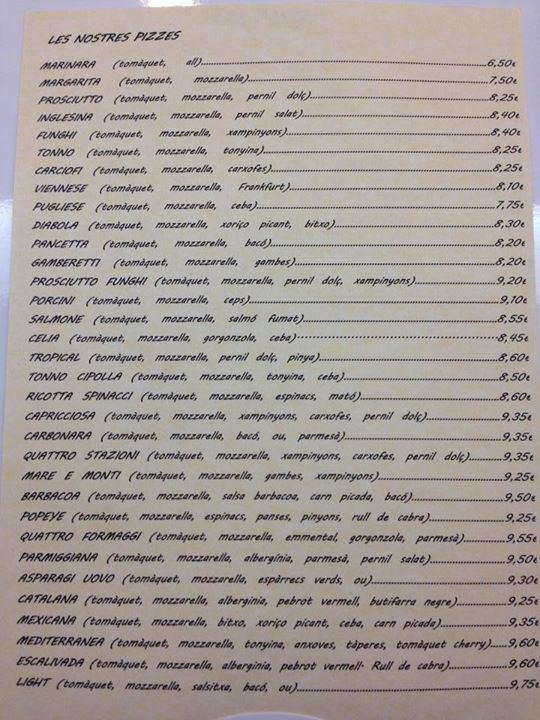 LES NOSTRES PIZZES
MARINARA (tomàquet, all)...........6,50€
MARGARITA (tomàquet, mozzarella)...........7,50€
PROSCIUTTO (tomàquet, mozzarella, pernil dolç)...........8,25€
INGLESINA (tomàquet, mozzarella, pernil salat)...........8,40€
FUNGHI (tomàquet, mozzarella, xampinyons)...........8,40€
TONNO (tomàquet, mozzarella, tonyina)...........8,25€
CARCIOFI (tomàquet, mozzarella, carxofes)...........8,25€
VIENNESE (tomàquet, mozzarella, Frankfurt)...........8,10€
PUGLIESE (tomàquet, mozzarella, ceba)...........7,75€
DIABOLA (tomàquet, mozzarella, xoriço picant, bitxo)...........8,30€
PANCETTA (tomàquet, mozzarella, bacó)...........8,20€
GAMBERETTI (tomàquet, mozzarella, gambes)...........8,20€
PROSCIUTTO FUNGHI (tomàquet, mozzarella, pernil dolç, xampinyons)...........9,20€
PORCINI (tomàquet, mozzarella, ceps)...........9,10€
SALMONE (tomàquet, mozzarella, salmó fumat)...........8,55€
CELIA (tomàquet, mozzarella, gorgonzola, ceba)...........8,45€
TROPICAL (tomàquet, mozzarella, pernil dolç, pinya)...........8,60€
TONNO CIPOLLA (tomàquet, mozzarella, tonyina, ceba)...........8,50€
RICOTTA SPINACCI (tomàquet, mozzarella, espinacs, mató)...........8,60€
CAPRICCIOSA (tomàquet, mozzarella, xampinyons, carxofes, pernil dolç)...........9,35€
CARBONARA (tomàquet, mozzarella, bacó, ou, parmesà)...........9,35€
QUATTRO STAZIONI (tomàquet, mozzarella, xampinyons, carxofes, pernil dolç)...........9,35€
MARE E MONTI (tomàquet, mozzarella, gambes, xampinyons)...........9,25€
BARBACOA (tomàquet, mozzarella, salsa barbacoa, carn picada, bacó)...........9,50€
POPEYE (tomàquet, mozzarella, espinacs, panses, pinyons, rull de cabra)...........9,25€
QUATTRO FORMAGGI (tomàquet, mozzarella, emmental, gorgonzola, parmesà)...........9,55€
PARMIGGIANA (tomàquet, mozzarella, albergínia, parmesà, pernil salat)...........9,50€
ASPARAGI UOVO (tomàquet, mozzarella, espàrrecs verds, ou)...........9,30€
CATALANA (tomàquet, mozzarella, alberginia, pebrot vermell, butifarra negre)...........9,25€
MEXICANA (tomàquet, mozzarella, bitxo, xoriço picant, ceba, carn picada)...........9,35€
MEDITERRANEA (tomàquet, mozzarella, tonyina, anxoves, tàperes, tomàquet cherry)......9,60€
ESCALIVADA (tomàquet, mozzarella, alberginia, pebrot vermell· Rull de cabra)...........9,60€
LIGHT (tomàquet, mozzarella, salsitxa, bacó, ou)...........9,75€